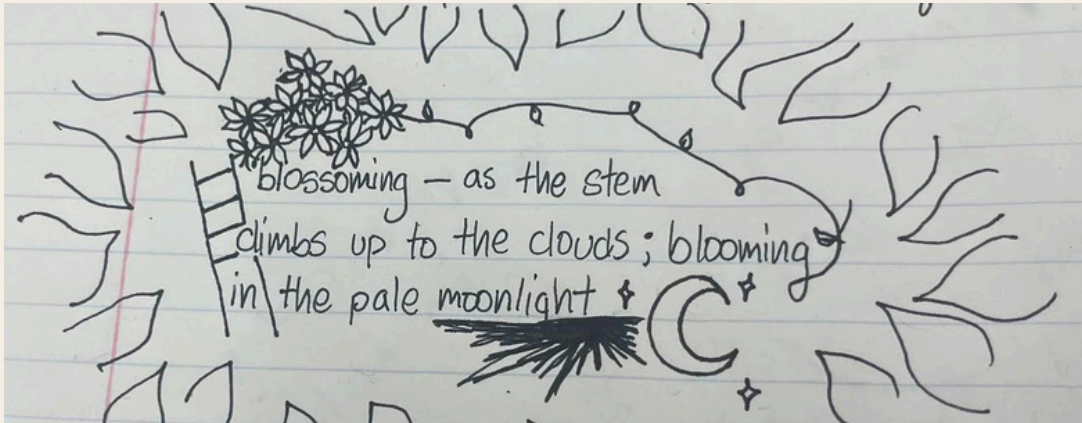 blossoming – as the stem
climbs up to the clouds ; blooming
in the pale moonlight